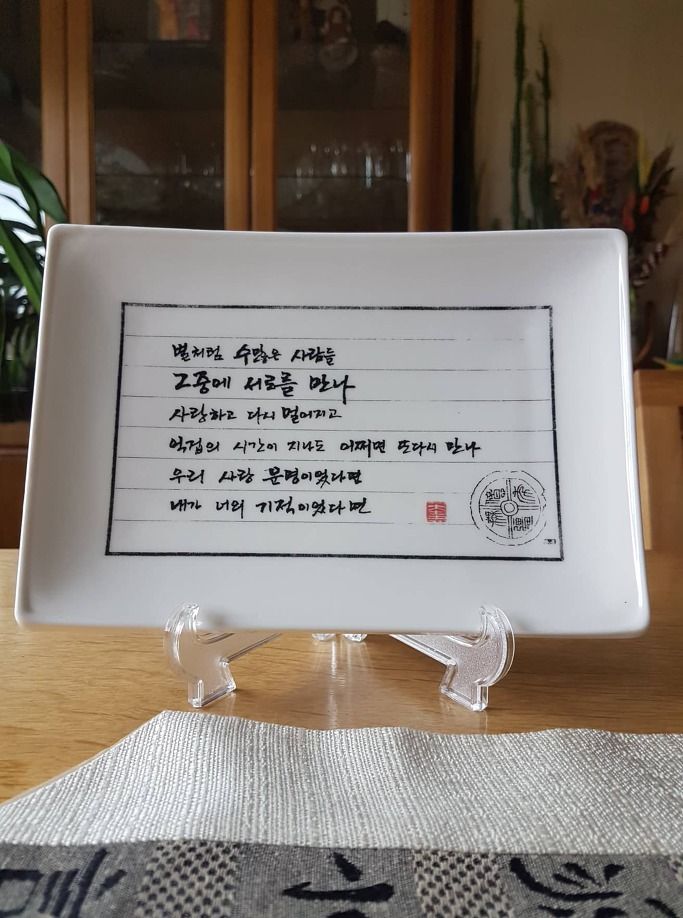 별처럼 수많은 사람들
그중에 서로를 만나
사랑하고 다시 멀어지고
억겁의 시간이 지나도 어쩌면 또다시 만나
우리 사랑 운명이었다면
내가 너의 기적이었다면